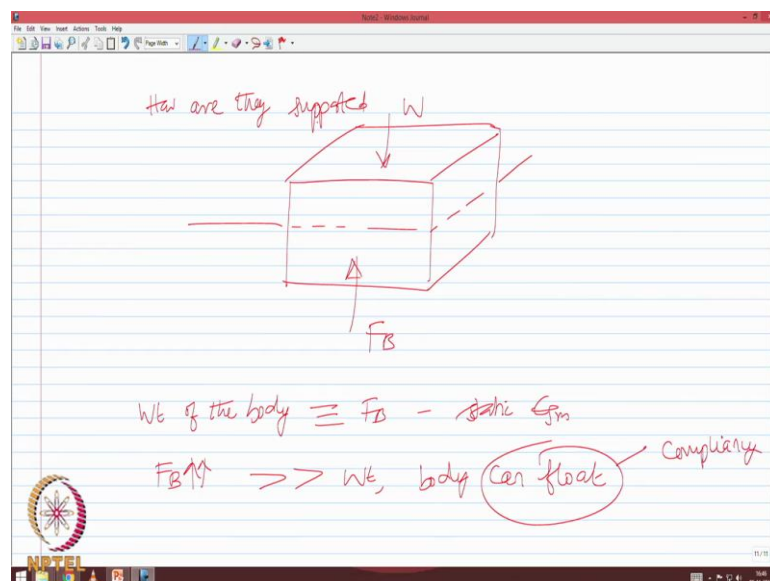 Note2 - Windows Journal
File Edit View Insert Actions Tools Help
Page Width
How are they supported W
F_B
Wt of the body ≡ F_B - static
F_B ↑↑ >> Wt, body can float
NPTEL
11/11